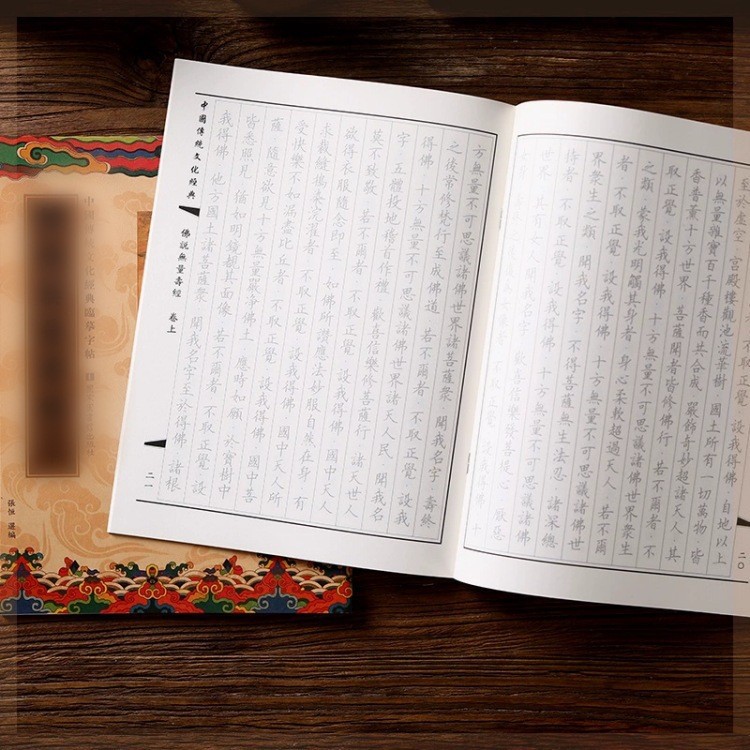 設我得佛 自地以上
至於虛空 宮殿樓觀池流華樹 國土所有一切萬物 皆
以無量雜寶百千種香而共合成 嚴飾奇妙超諸天人 其
香普薰十方世界 菩薩聞者皆修佛行 若不爾
者 不取正覺 設我得佛 十方無量不可思議諸佛世界眾生
之類 蒙我光明觸其身者 身心柔軟超過天人 若不爾
者 不取正覺 設我得佛 十方無量不可思議諸佛世
界眾生之類 聞我名字 不得菩薩無生法忍 諸深總
持者 不取正覺 設我得佛 十方無量不可思議諸佛世
界 其有女人 聞我名字 歡喜信樂發菩提心 厭惡
二〇
方無量不可思議諸佛世界諸菩薩眾 聞我名字 壽終
之後常修梵行至成佛道 若不爾者 不取正覺 設我
得佛 十方無量不可思議諸佛世界諸天人民 聞我名
字 五體投地稽首作禮 歡喜信樂修菩薩行 諸天世人
莫不致敬 若不爾者 不取正覺 設我得佛 國中天人
欲得衣服隨念即至 如佛所讚應法妙服自然在身 有
求裁縫擣染浣濯者 不取正覺 設我得佛 國中天人所
受快樂不如漏盡比丘者 不取正覺 設我得佛 國中菩
薩 隨意欲見十方無量嚴淨佛土 應時如願 於寶樹中
皆悉照見 猶如明鏡覩其面像 若不爾者 不取正覺 設
我得佛 他方國土諸菩薩眾 聞我名字至於得佛 諸根
中國傳統文化經典 佛說無量壽經 卷上
二一
張恒 選編